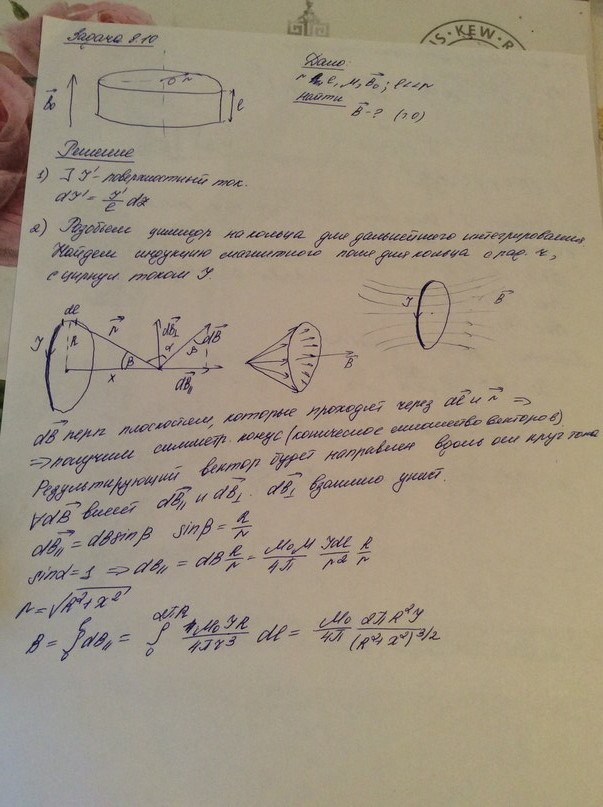 Задача 8.10
Дано:
r, l, μ, B₀; l<<r
Найти
B - ? (т.0)
B₀
r
l
Решение
1) J' - поверхностный ток.
dJ' = J'/l dz
2) Разобьем цилиндр на кольца для дальнейшего интегрирования.
Найдем индукцию магнитного поля для кольца с рад. r,
с циркул. током J.
J
B
dl
r
dB⊥
dB
J
R
β
α
β
x
dB||
B
dB перп. плоскостям, которые проходят через dl и r ⇒
⇒ получим симметр. конус (коническое множество векторов)
Результирующий вектор будет направлен вдоль оси круг тока
∀dB имеет dB|| и dB⊥. dB⊥ взаимно уничт.
dB|| = dB sinβ sinβ = R/r
sinα = 1 ⇒ dB|| = dB R/r = μ₀μ/4π Jdl/r² R/r
r = √(R²+x²)
B = ∮dB|| = ∫₀^2πR μ₀JR/4πr³ dl = μ₀/4π 2πR²J/(R²+x²)^3/2
S·KEW·R